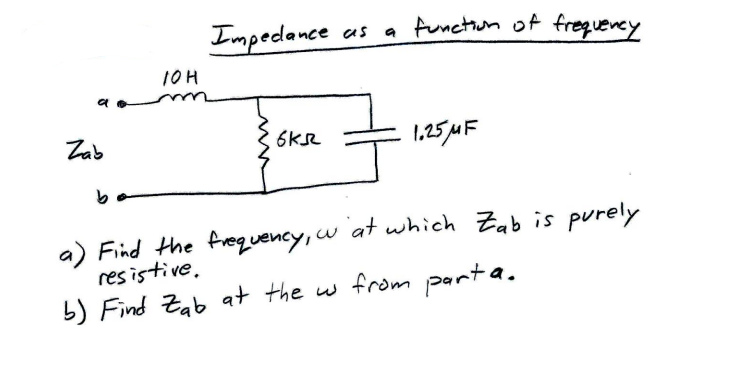 Impedance as a function of frequency
10 H
a
6kΩ
1.25 μF
Zab
b
a) Find the frequency, ω at which Zab is purely
resistive.
b) Find Zab at the ω from part a.